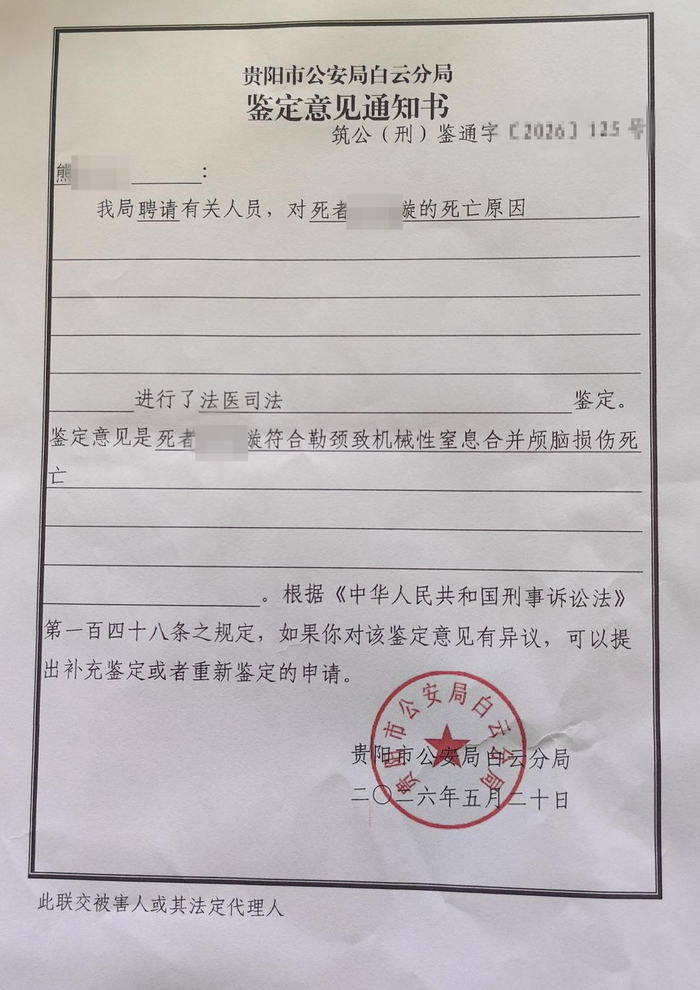 贵阳市公安局白云分局
鉴定意见通知书
筑公（刑）鉴通字〔2026〕125号
熊：
我局聘请有关人员，对死者 璇的死亡原因
进行了法医司法 鉴定。
鉴定意见是死者 璇符合勒颈致机械性窒息合并颅脑损伤死
亡
。根据《中华人民共和国刑事诉讼法》
第一百四十八条之规定，如果你对该鉴定意见有异议，可以提
出补充鉴定或者重新鉴定的申请。
贵阳市公安局白云分局
贵阳市公安局白云分局
二〇二六年五月二十日
此联交被害人或其法定代理人